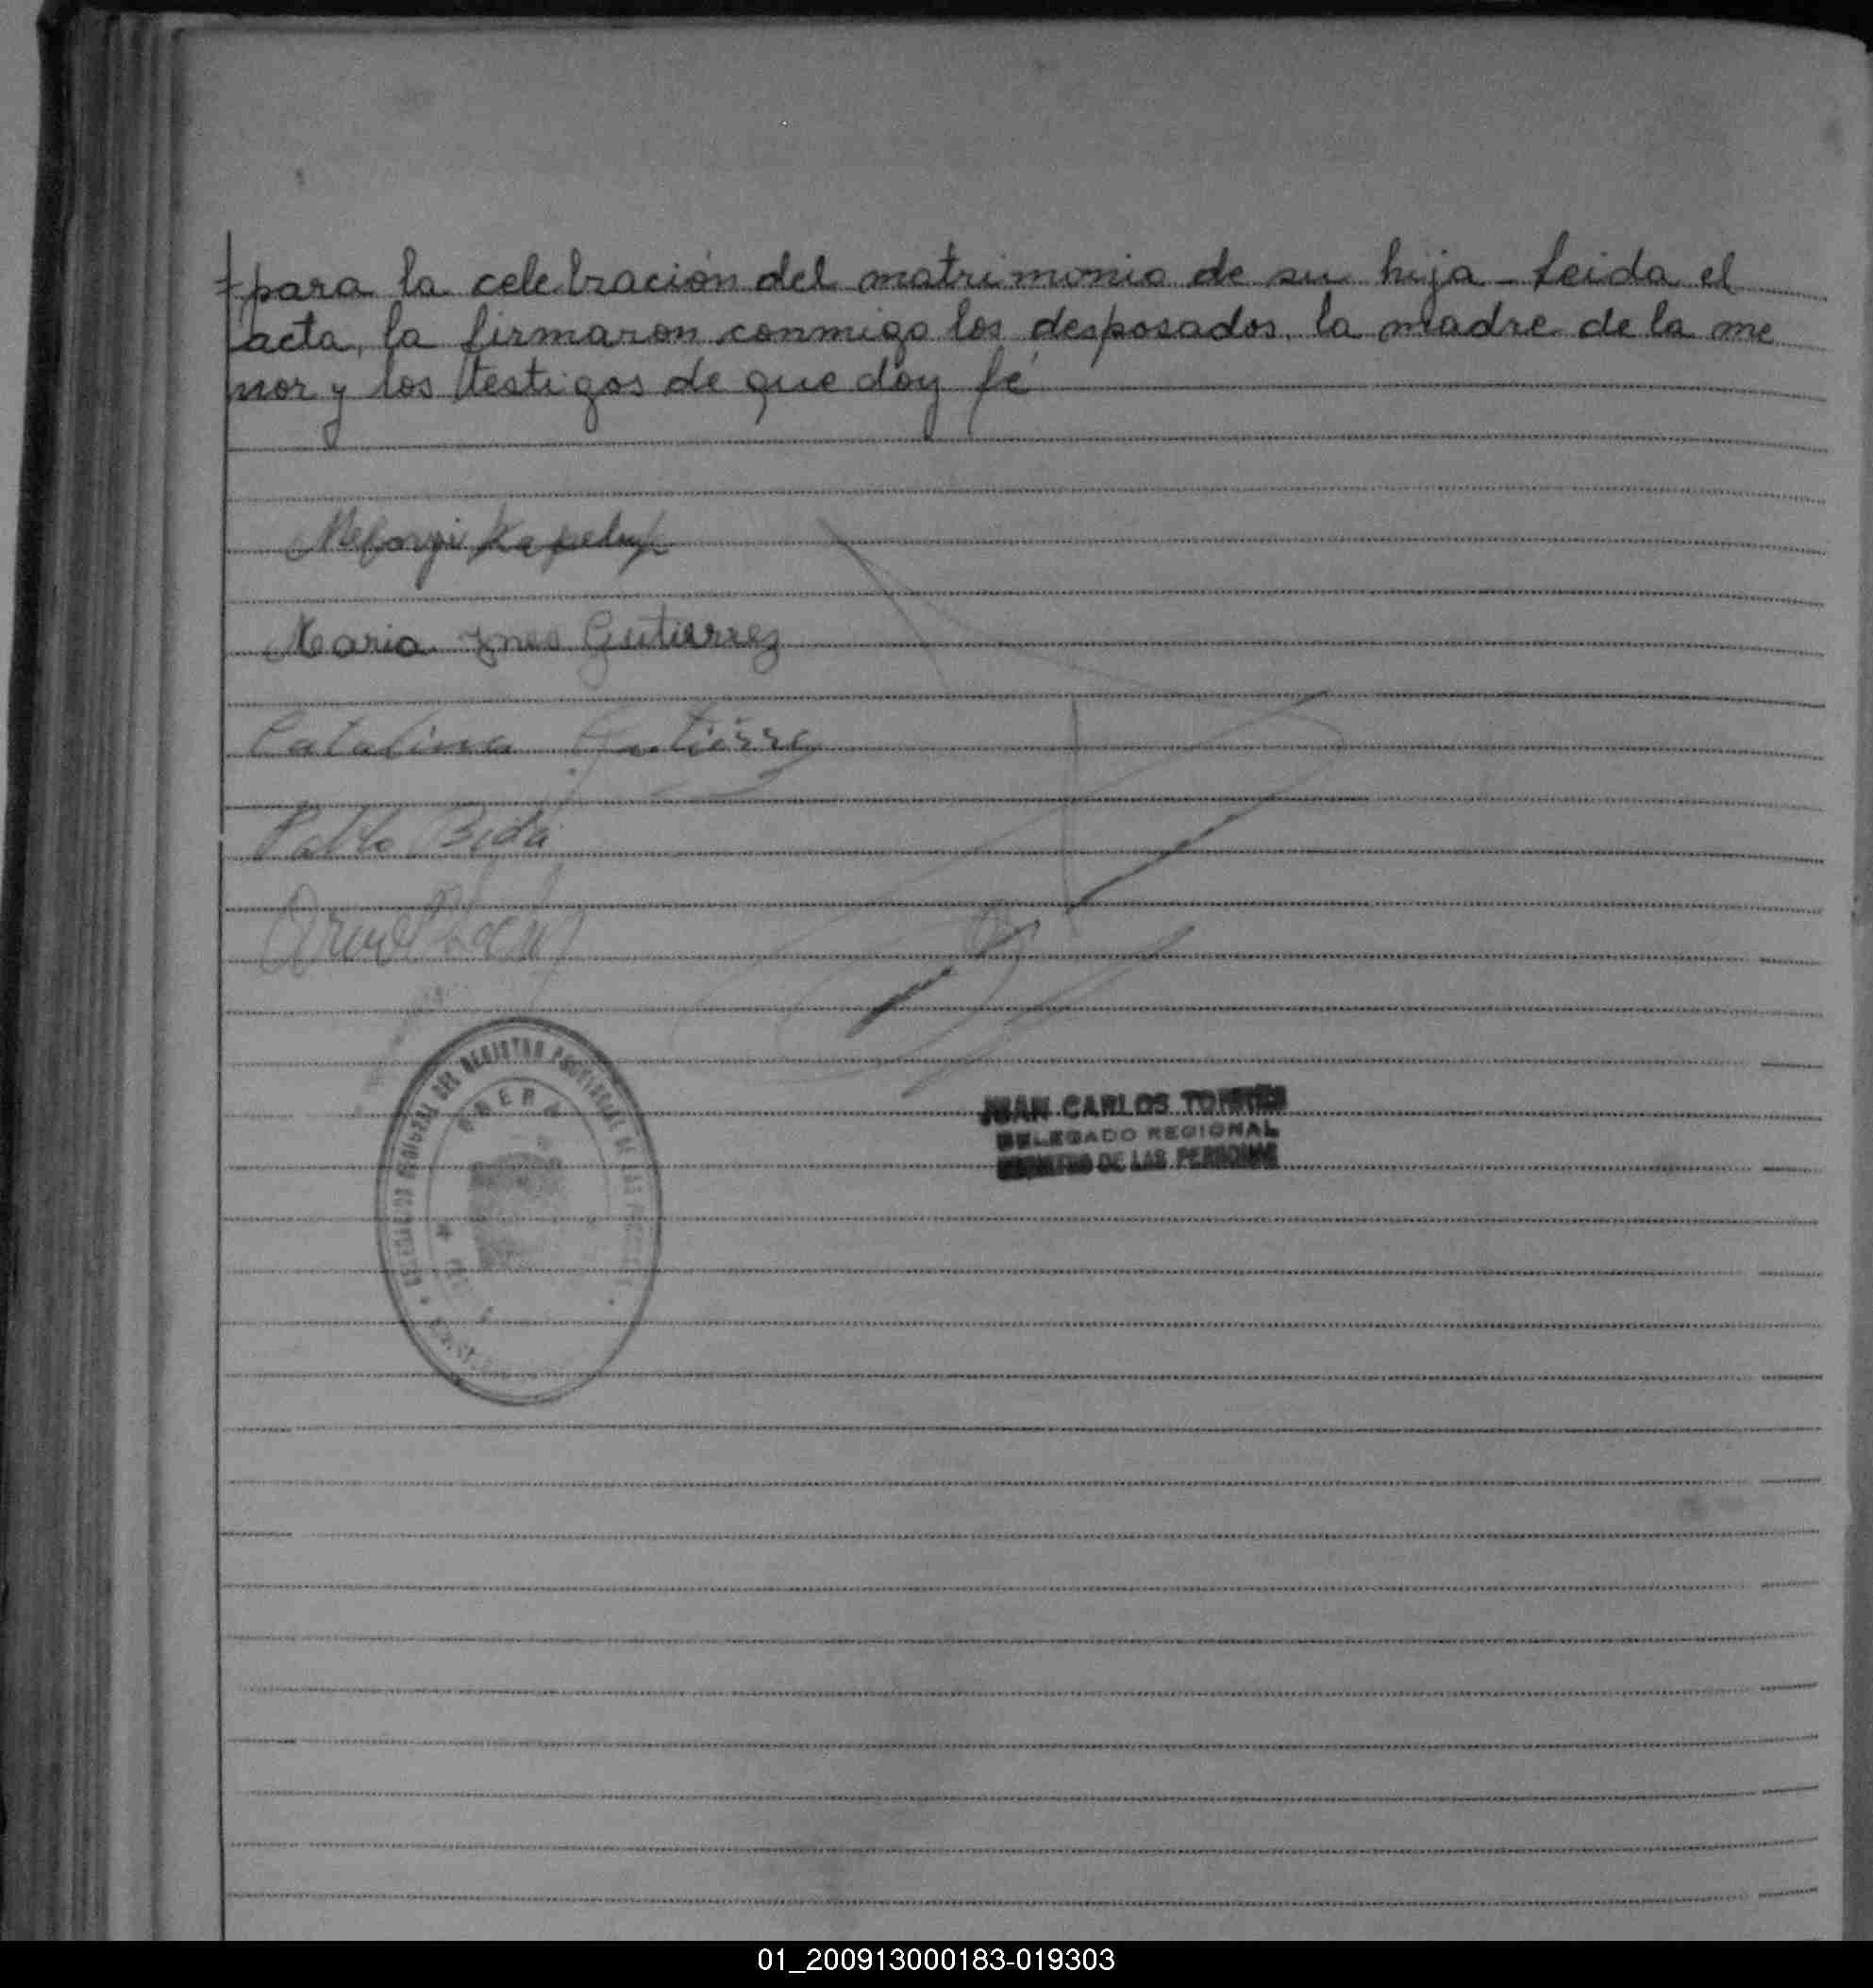 para la celebración del matrimonio de su hija - Leida el
acta, la firmaron conmigo los desposados, la madre de la me
nor y los testigos de que doy fé
Maria Ines Gutierrez
Catalina Gutierrez
Pablo Bida
DEL REGISTRO PROVINCIAL DE LAS
OBERA
JUAN CARLOS
DELEGADO REGIONAL
REGISTRO DE LAS PERSONAS
01_200913000183-019303